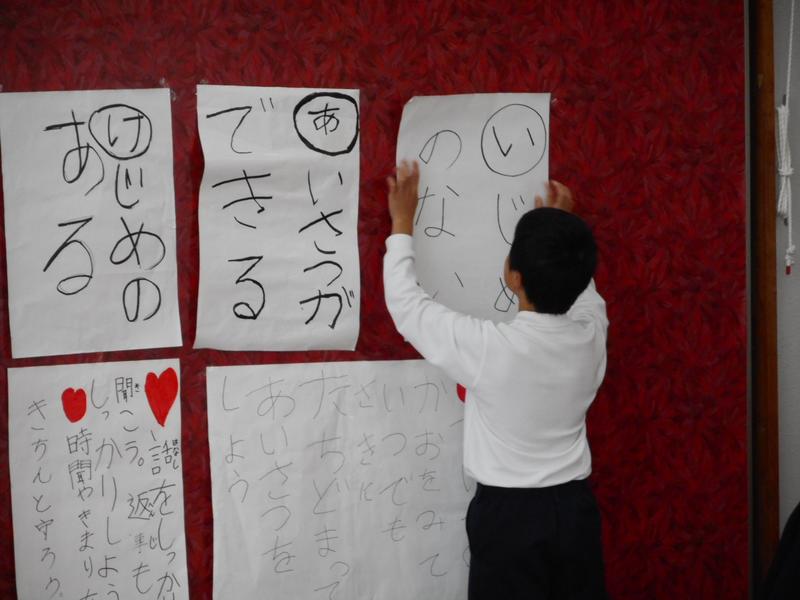 いじめ
のない
あいさつが
できる
けじめの
ある
かおをみて
いつでも
さきに
たちどまって
あいさつを
しよう
話をしっかり
聞こう。返事も
しっかりしよう
時間やきまりを
きちんと守ろう。